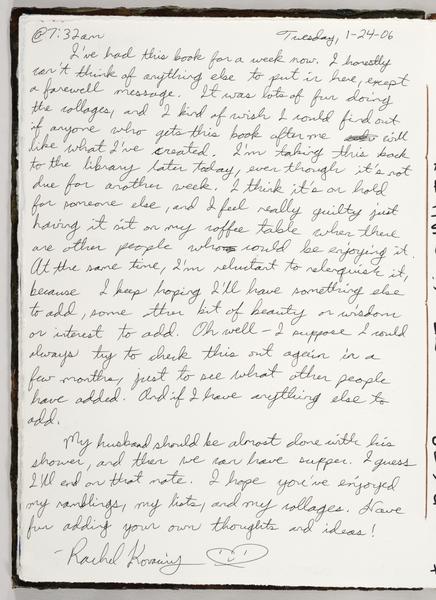 @7:32am Tuesday, 1-24-06
I've had this book for a week now. I honestly
can't think of anything else to put in here, except
a farewell message. It was lots of fun doing
the collages, and I kind of wish I could find out
if anyone who gets this book after me will
like what I've created. I'm taking this back
to the library later today, even though it's not
due for another week. I think it's on hold
for someone else, and I feel really guilty just
having it sit on my coffee table when there
are other people who could be enjoying it.
At the same time, I'm reluctant to relenquish it,
because I keep hoping I'll have something else
to add, some other bit of beauty or wisdom
or interest to add. Oh well - I suppose I could
always try to check this out again in a
few months, just to see what other people
have added. And if I have anything else to
add.
My husband should be almost done with his
shower, and then we can have supper. I guess
I'll end on that note. I hope you've enjoyed
my ramblings, my lists, and my collages. Have
fun adding your own thoughts and ideas!
- Rachel